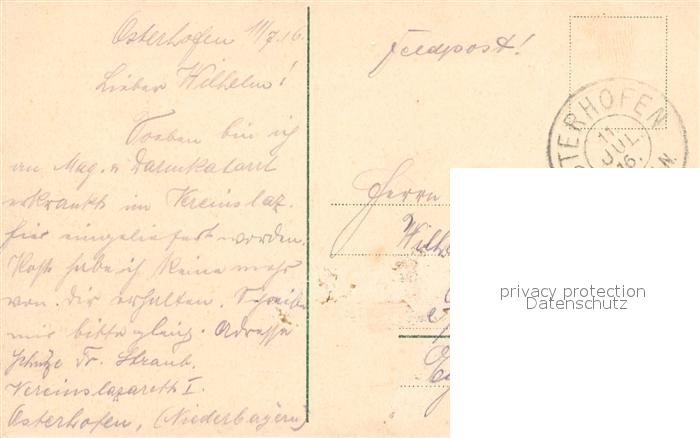 Osterhofen 11/7.16.
Lieber Wilhelm!
Soeben bin ich
an Mag. u Darmkatarrh
erkrankt im Vereinslaz.
hier eingeliefert worden.
Post habe ich keine mehr
von Dir erhalten. Schreibe
mir bitte gleich. Adresse
Schütze Fr. Straub.
Vereinslazarett I.
Osterhofen, (Niederbayern)
Feldpost!
OSTERHOFEN
11.
JUL.
16.
Herrn
Wilh
privacy protection
Datenschutz